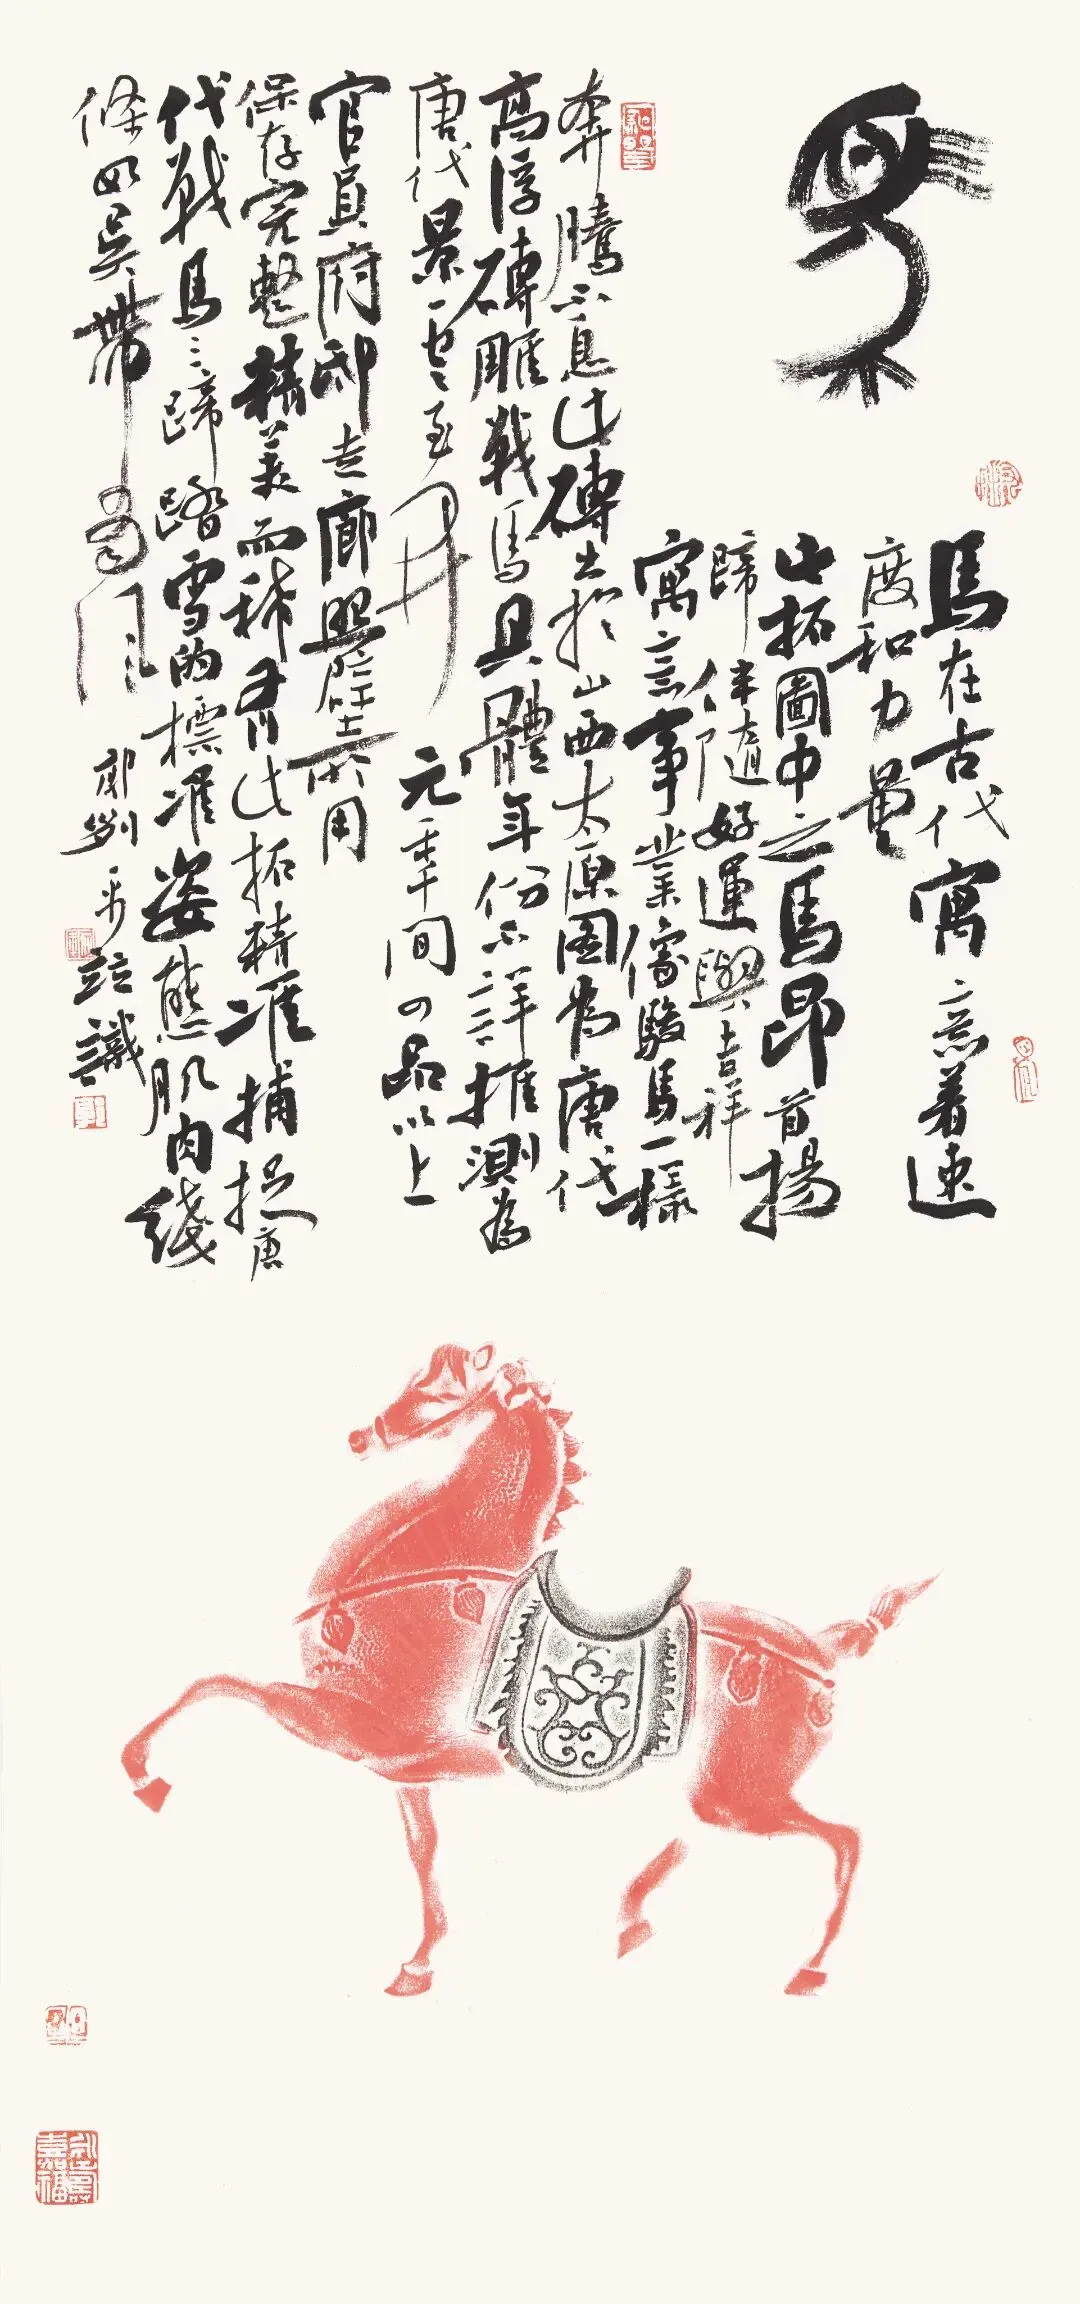 馬
馬在古代寓意着速
度和力量
此拓圖中之馬昂首揚
蹄伴隨好運與吉祥
寓意事業像駿馬一樣
奔騰不息此磚出於山西太原圖為唐代
高浮磚雕戰馬具體年份不詳推測為
唐代景雲至開元年間四品以上
官員府邸走廊照壁所用
保存完整精美而稀有此拓精准捕捉唐
代戰馬馬蹄踏雪的標准姿態肌肉綫
條如吳帶當風
並識